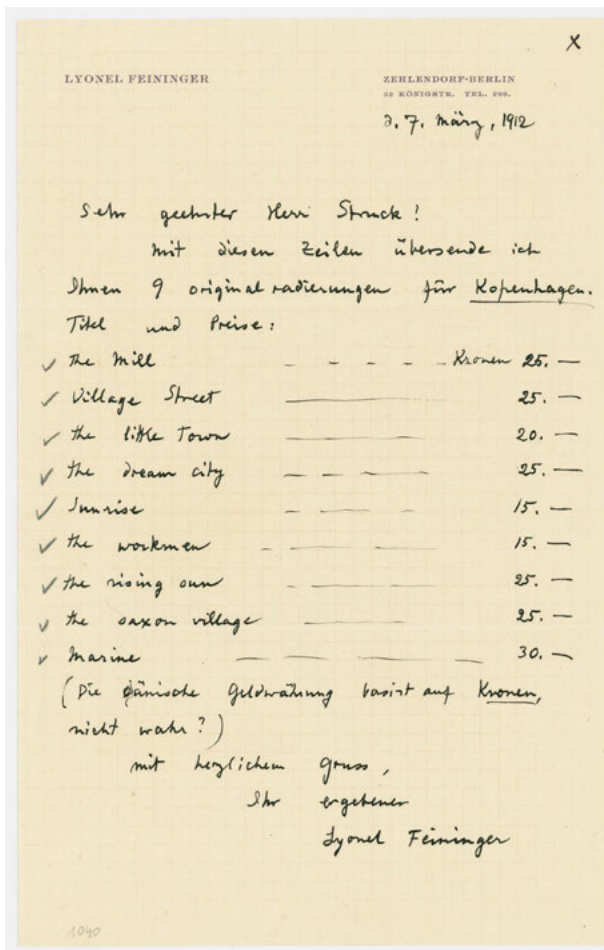 X
LYONEL FEININGER
ZEHLENDORF-BERLIN
32 KÖNIGSTR. TEL. 289.
d. 7. März, 1912
Sehr geehrter Herr Struck!
Mit diesen Zeilen übersende ich
Ihnen 9 original radierungen für Kopenhagen.
Titel und Preise:
✓ the Mill – – – – Kronen 25. —
✓ Village Street — 25. —
✓ the little Town — 20. —
✓ the dream city — — — — 25. —
✓ Sunrise — — — 15. —
✓ the workmen — — — 15. —
✓ the rising sun — — — 25. —
✓ the saxon village — 25. —
✓ Marine — — — — 30. —
(Die dänische Geldwährung basirt auf Kronen,
nicht wahr?)
mit herzlichem Gruss,
Ihr ergebener
Lyonel Feininger
1040